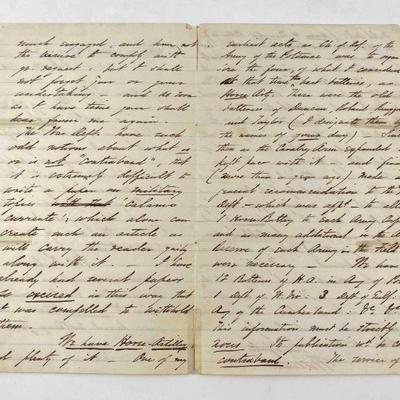 much engaged, and have not
the leisure to comply with
yr request; but to shall
not forget you or your
undertaking – and so soon
as I have time you shall
hear from me again.
The War Dept. have such
odd notions about what is
or is not "contraband", that
it is extremely difficult to
write a paper on military
topics "calamo
currente"; which alone can
create such an article as
will carry the reader
along with it – I have
already had several papers
so excised in this way that
I was compelled to withhold
them.
We have Horse Artillery,
and plenty of it. One of my
earliest acts, as Ch. of Art. of the
Army of the Potomac was to
the four, of what I considered
at that time best batteries
Horse Arty. These were the old
batteries of Duncan, Robert, Ringgold
and Taylor (I designate them by
the names of young days). Since
then as the Cavalry Arm expanded
kept pace with it – and
(more than a year ago) made a
general recommendation to the
Dept – which was appd. – to
1 Horse Battery to each Army Corps
and as many additional in the
Reserve of each Army in the field
were necessary – We have
12 Batteries of H.A. in Army of Pot
1 Dept. of W. Va: 3 Dept of Gulf.
Army of the Cumberland; &c &c
This information must be strictly
Its publication wd. be
contraband. The service of